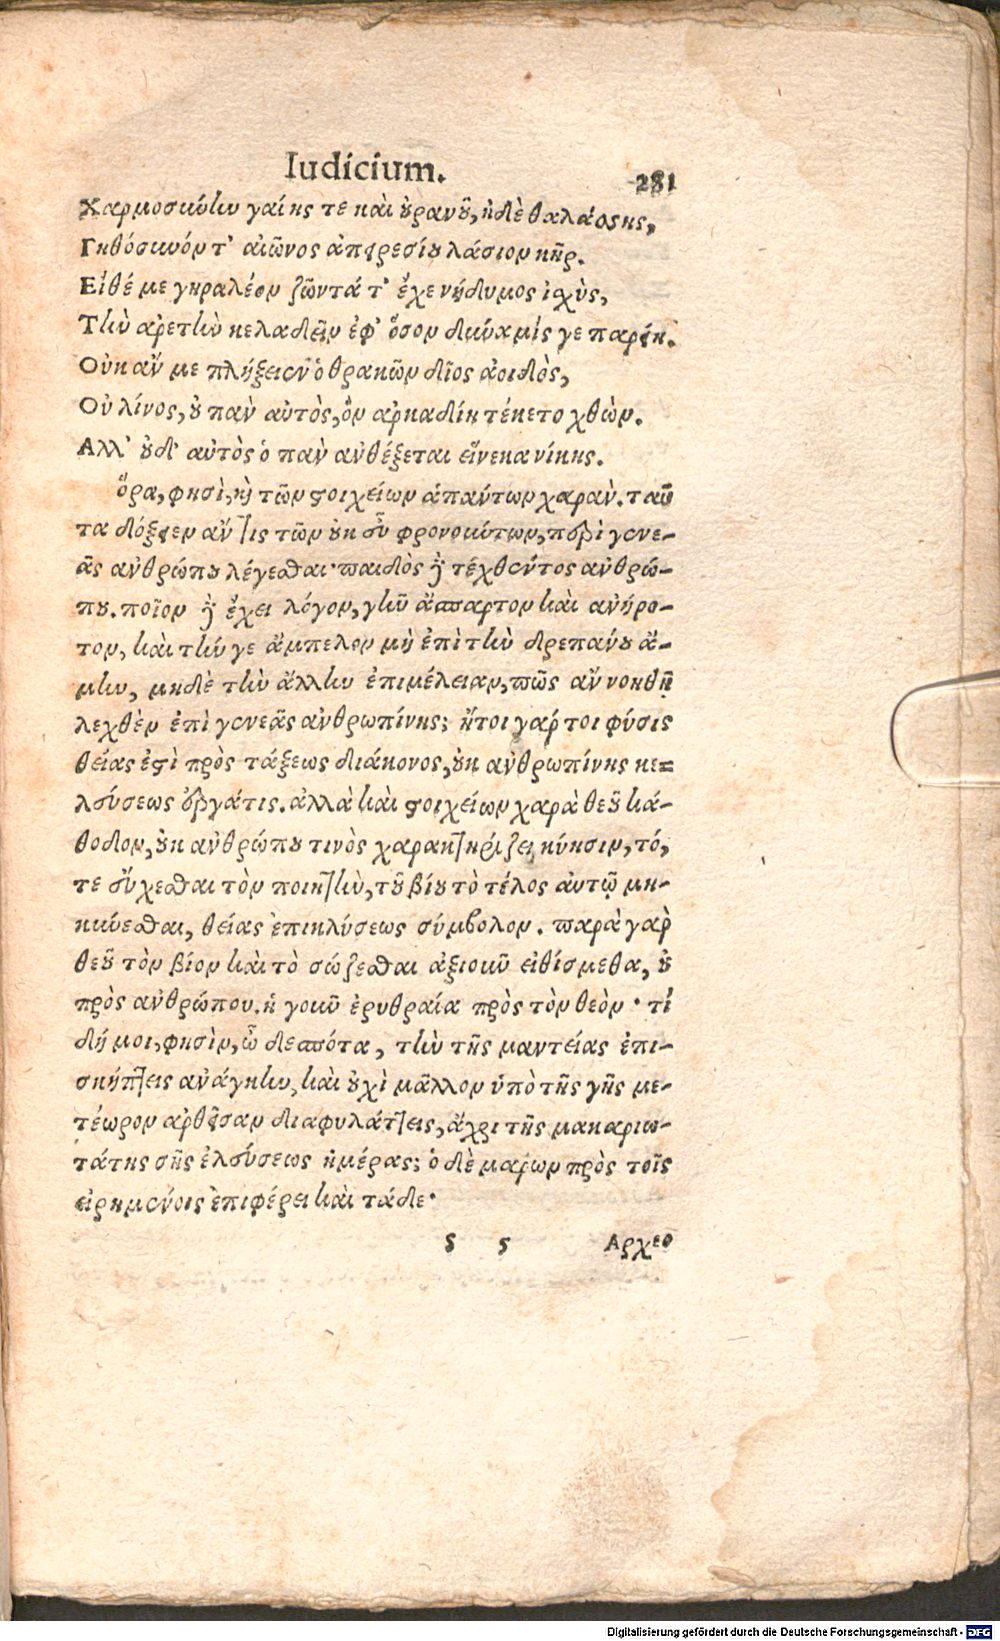 Iudicium. 281
Χαρμοσύνην γαίης τε καὶ οὐρανοῦ, ἠδὲ θαλάσσης,
Γηθόσυνόν τ' αἰῶνος ἀπειρεσίου λάσιον κῆρ.
Εἰθέ με γηραλέον ζῶντά τ' ἔχε νήδυμος ἰσχὺς,
Τὴν ἀρετὴν κελαδεῖν ἐφ' ὅσον δύναμίς γε παρείη.
Οὐκ ἄν με πλήξειεν ὁ θρακῶν δῖος ἀοιδὸς,
Οὐ λίνος, οὐ πὰν αὐτὸς, ὃν ἀρκαδίη τέκετο χθών.
Αλλ' οὐδ' αὐτὸς ὁ πὰν ἀνθέξεται εἵνεκα νίκης.
ὅρα, φησὶ, καὶ τῶν στοιχείων ἁπάντων χαρὰν. ταῦ
τα δόξειεν ἄν τις τῶν οὐκ εὖ φρονούντων, περὶ γενε-
ᾶς ἀνθρώπου λέγεσθαι· παιδὸς γὰρ τεχθέντος ἀνθρώ-
που. ποῖον γὰρ ἔχει λόγον, γῆν ἄσπαρτον καὶ ἀνήρο-
τον, καὶ τήν γε ἄμπελον μὴ ἐπὶ τὴν δρεπάνου ἄ-
μην, μηδὲ τὴν ἄλλην ἐπιμέλειαν, πῶς ἂν νοηθῇ
λεχθὲν ἐπὶ γενεᾶς ἀνθρωπίνης; ἤτοι γάρ τοι φύσις
θείας ἐστὶ πρὸς τάξεως διάκονος, οὐκ ἀνθρωπίνης κε=
λεύσεως ἐργάτις. ἀλλὰ καὶ στοιχείων χαρὰ θεοῦ κά-
θοδον, οὐκ ἀνθρώπου τινὸς χαρακτηρίζει κύησιν, τό,
τε εὔχεσθαι τὸν ποιητὴν, τοῦ βίου τὸ τέλος αὐτῷ μη-
κύνεσθαι, θείας ἐπικλήσεως σύμβολον. παρὰ γὰρ
θεοῦ τὸν βίον καὶ τὸ σώζεσθαι ἀξιοῦν εἰθίσμεθα, οὐ
πρὸς ἀνθρώπου. ἡ γοῦν ἐρυθραία πρὸς τὸν θεὸν· τί
δή μοι, φησὶν, ὦ δεσπότα, τὴν τῆς μαντείας ἐπι-
σκήπτεις ἀνάγκην, καὶ οὐχὶ μᾶλλον ὑπὸ τῆς γῆς με-
τέωρον ἀρθεῖσαν διαφυλάττεις, ἄχρι τῆς μακαριω-
τάτης σῆς ἐλεύσεως ἡμέρας; ὁ δὲ μάρων πρὸς τοῖς
εἰρημένοις ἐπιφέρει καὶ τάδε·
ς ς Αρχεο
Digitalisierung gefördert durch die Deutsche Forschungsgemeinschaft - DFG